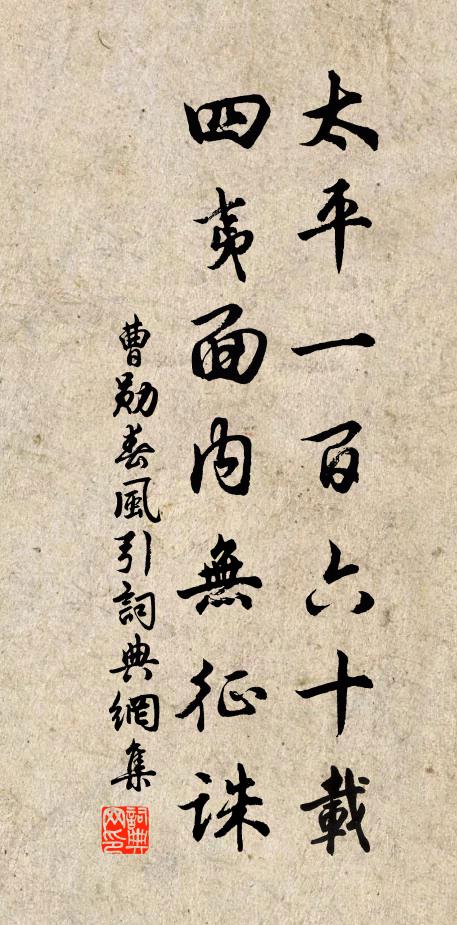 太平一百六十載
四夷面内無征誅
曹勛春風引詞典網集
詞典網印